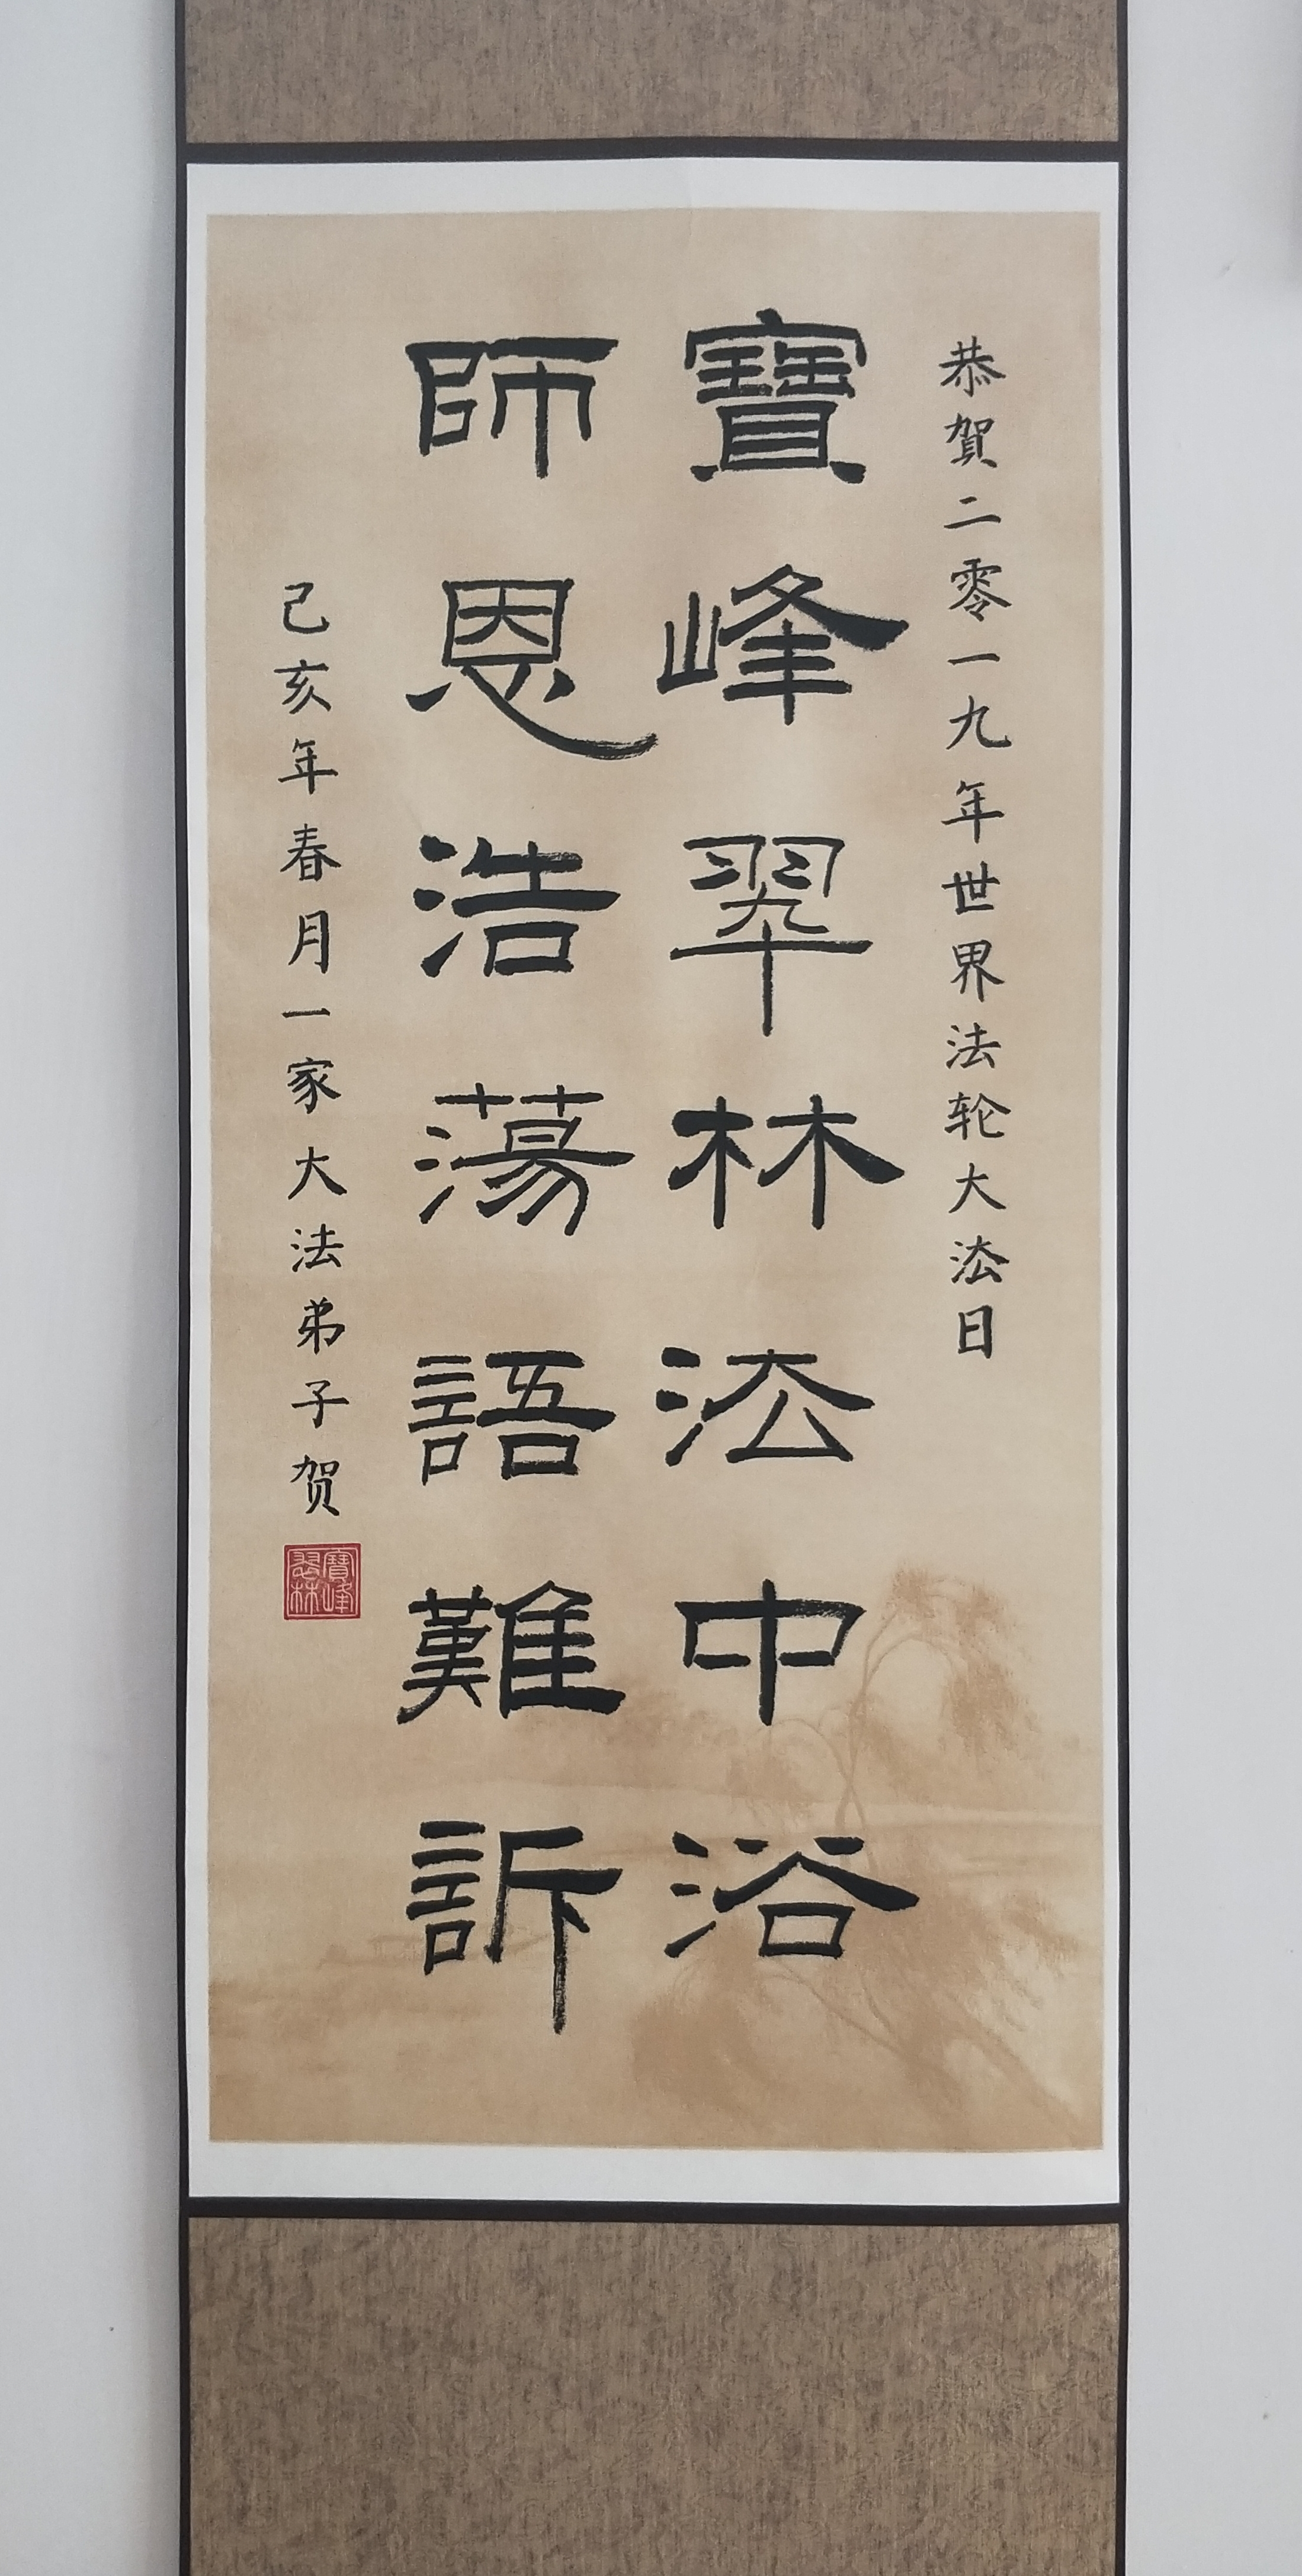 恭賀二零一九年世界法轮大法日
寶峰翠林法中浴
師恩浩蕩語難訴
己亥年春月一家大法弟子贺
寶峰翠林